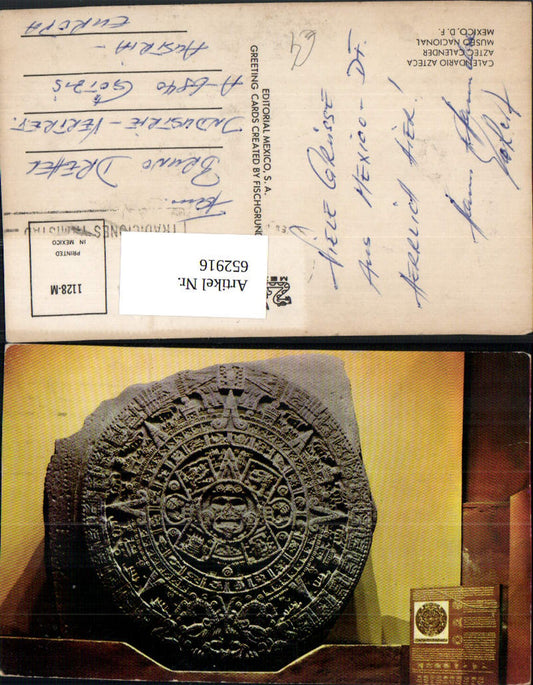 CALENDARIO AZTECA
AZTEC CALENDER
MUSEO NACIONAL
MEXICO, D. F.
VIELE GRÜSSE
AUS MEXICO - DF.
HERRLICH HIER!
EDITORIAL MEXICO, S. A.
GREETING CARDS CREATED BY FISCHGRUND
TRADICIONES Y AMISTAD
1128-M
PRINTED
IN MEXICO
Artikel Nr.
652916
BRUNO
INDUSTRIE - VERTRET.
A-6840 GÖTZIS
AUSTRIA -
EUROPA